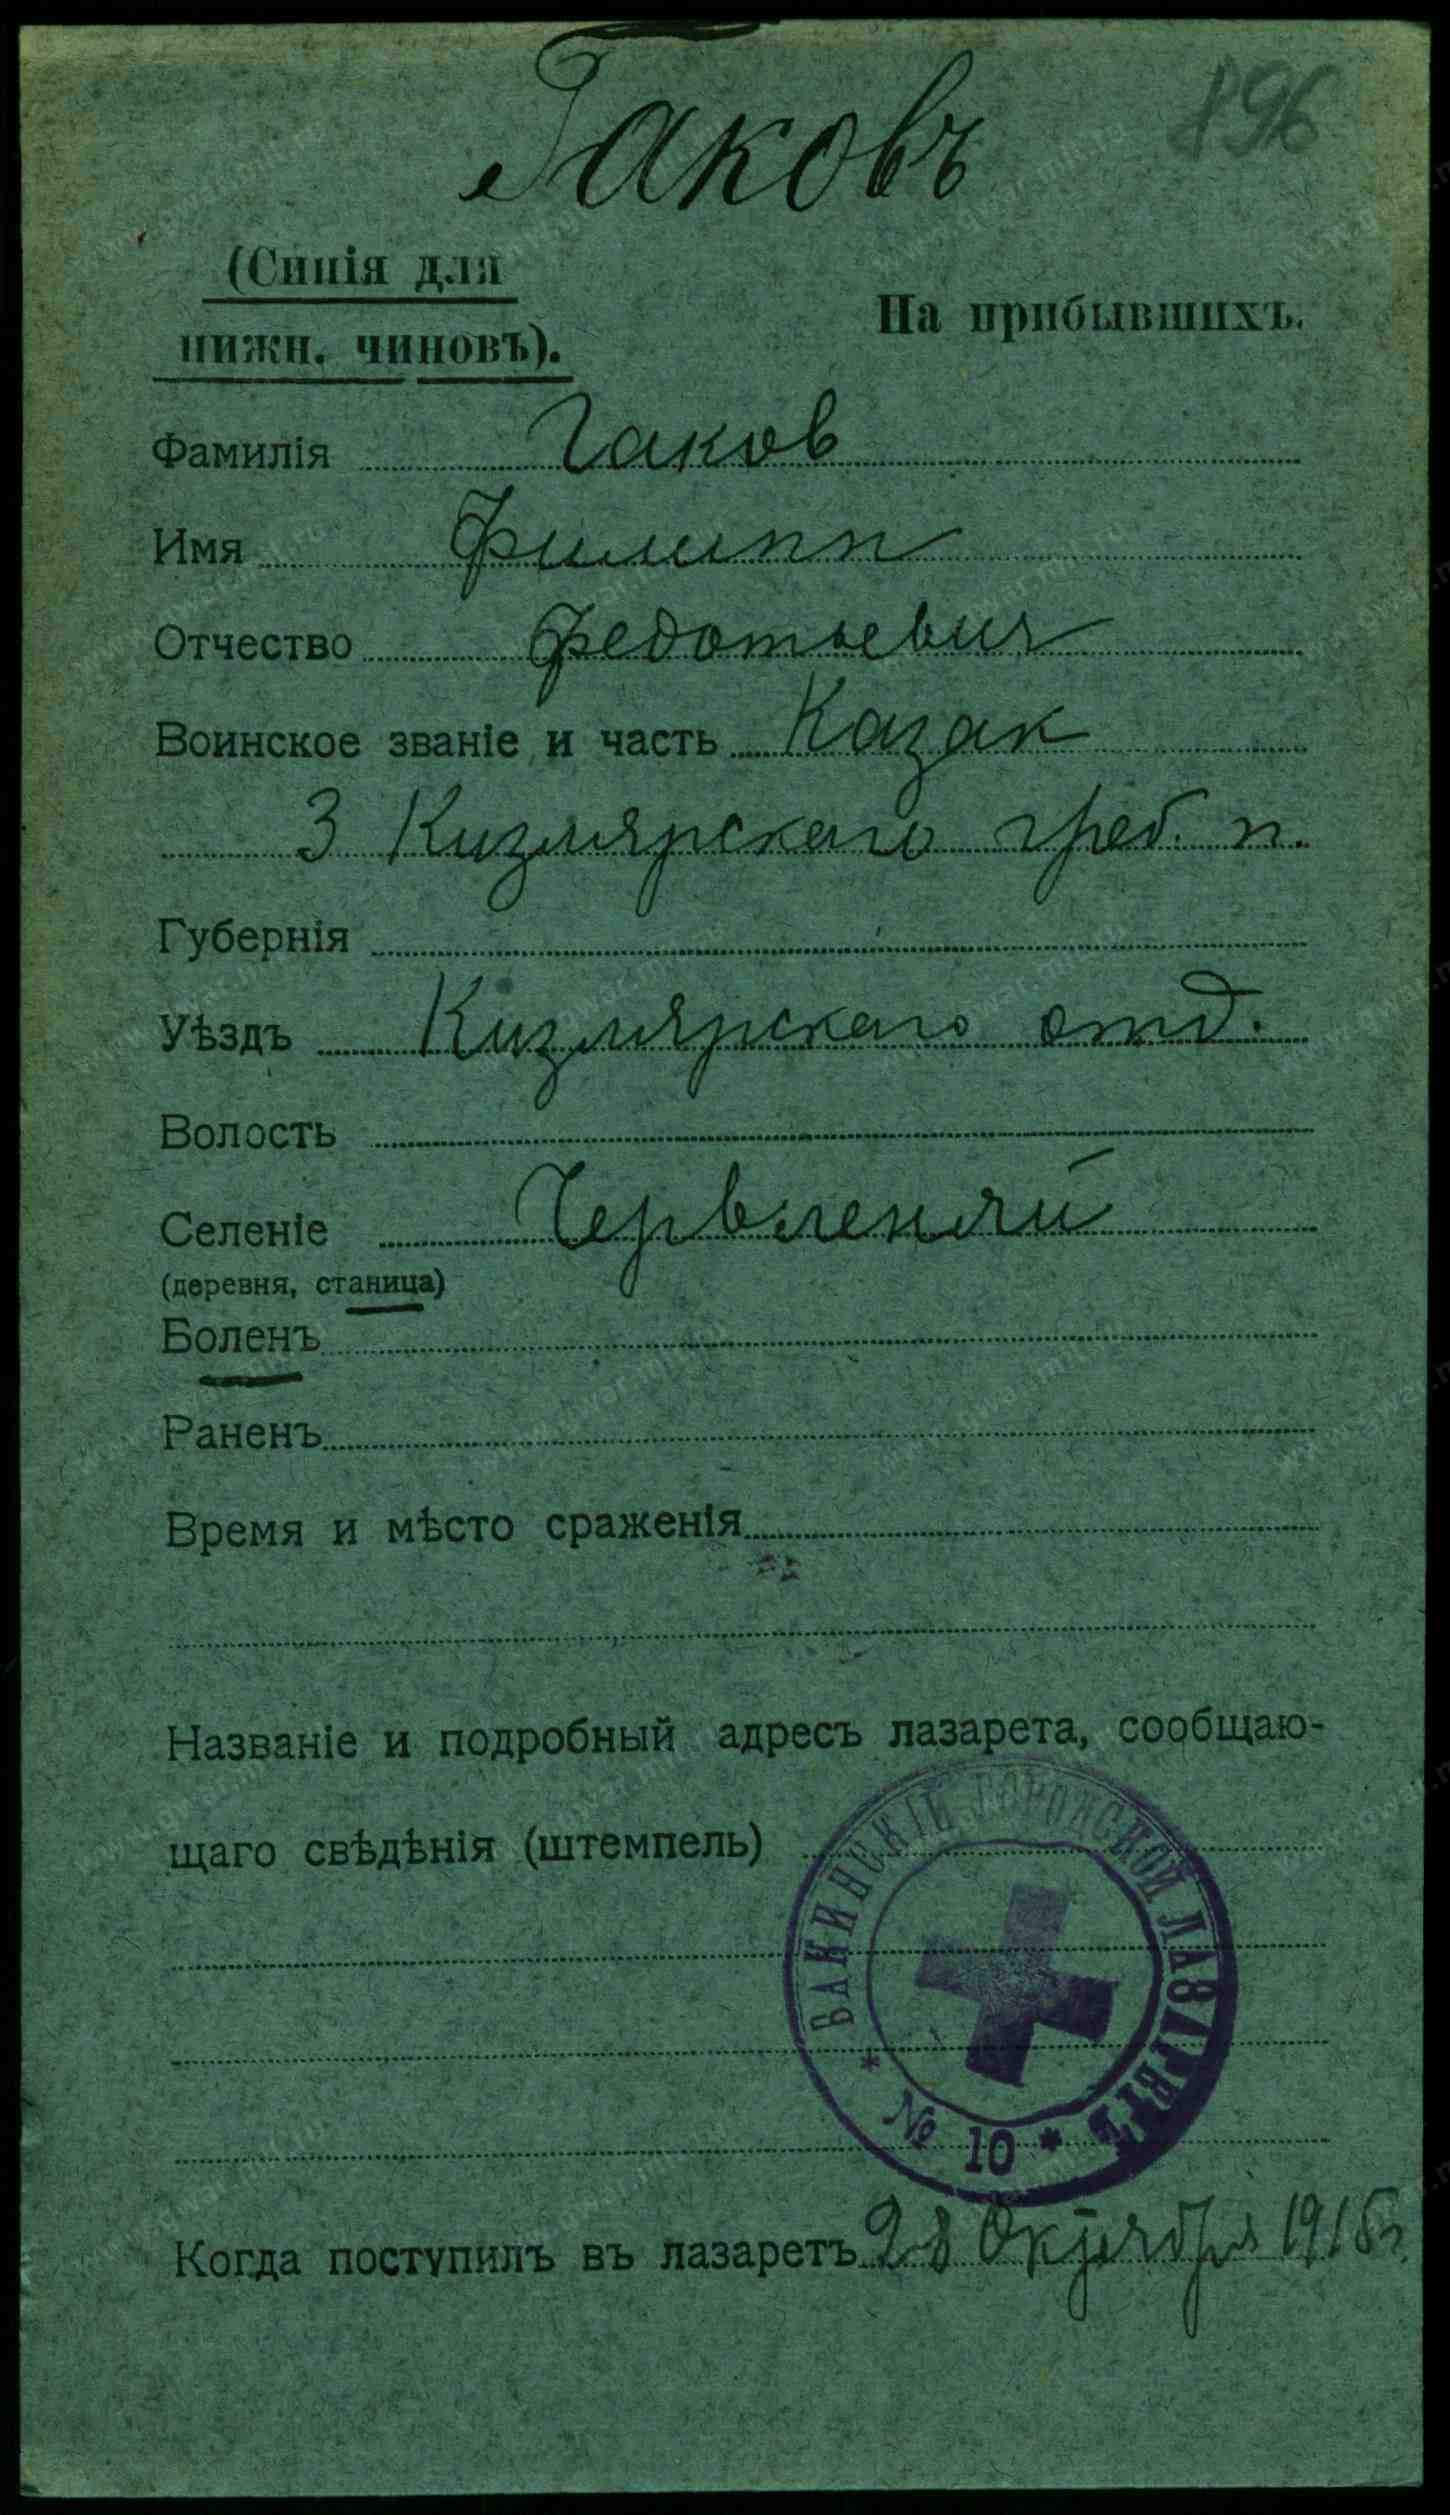 Гаковъ
896
(Синія для
нижн. чиновъ).
На прибывшихъ.
Фамилія Гаков
Имя Филипп
Отчество Федотьевич
Воинское званіе и часть Казак
3 Кизлярскаго греб. п.
Губернія
Уѣздъ Кизлярскаго отд.
Волость
Селеніе Червленяй
(деревня, станица)
Боленъ
Раненъ
Время и мѣсто сраженія
Названіе и подробный адресъ лазарета, сообщаю-
щаго свѣдѣнія (штемпель)
БАКИНСКІЙ ГОРОДСКОЙ ЛАЗАРЕТЪ
* № 10 *
Когда поступилъ въ лазаретъ 28 Октября 1915 г.
www.gwar.mil.ru